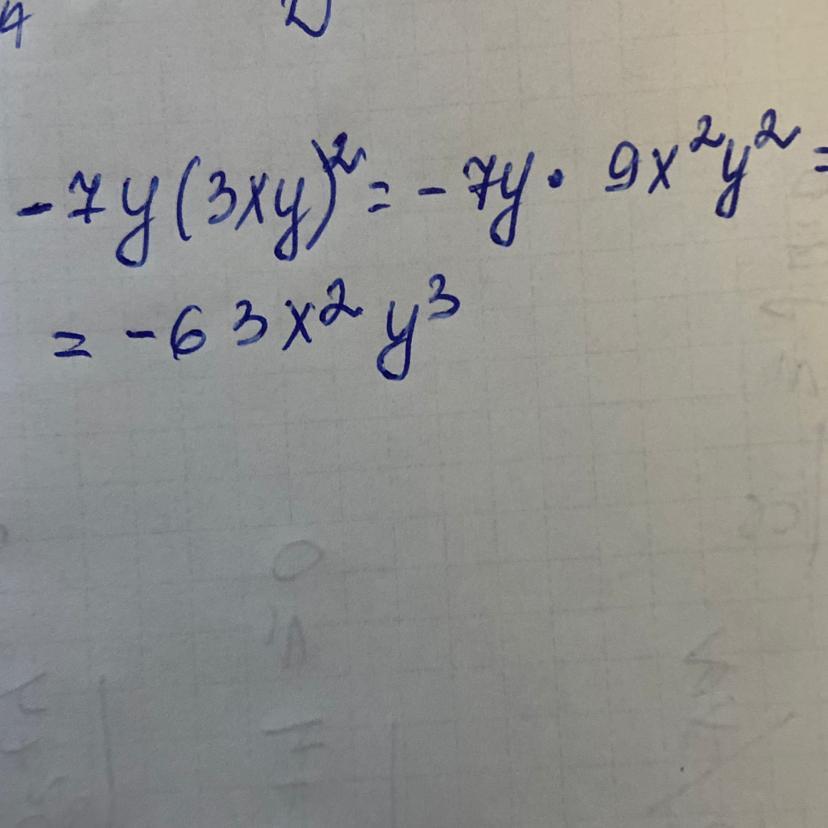 -7y(3xy)² = -7y · 9x²y² =
= -63x²y³